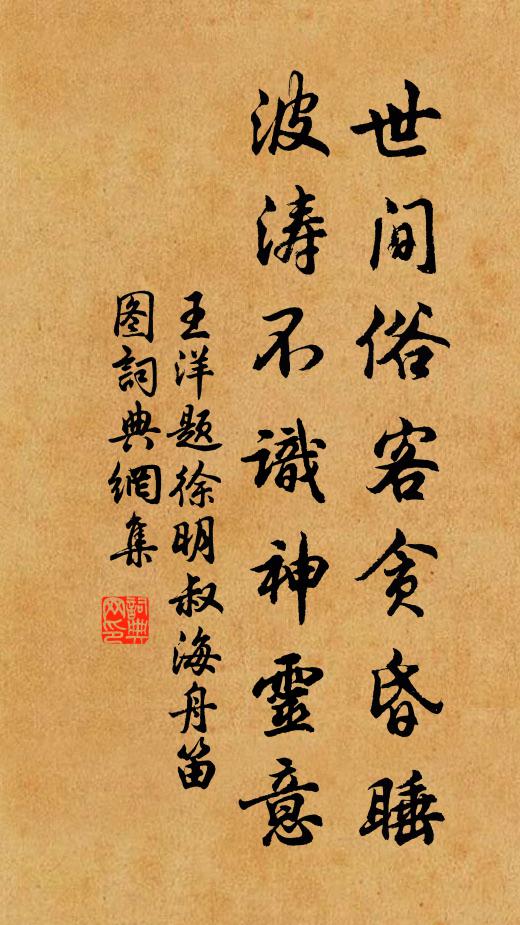 世间俗客贪昏睡
波涛不識神靈意
王洋题徐明叔海舟笛
图詞典網集
詞典
网印